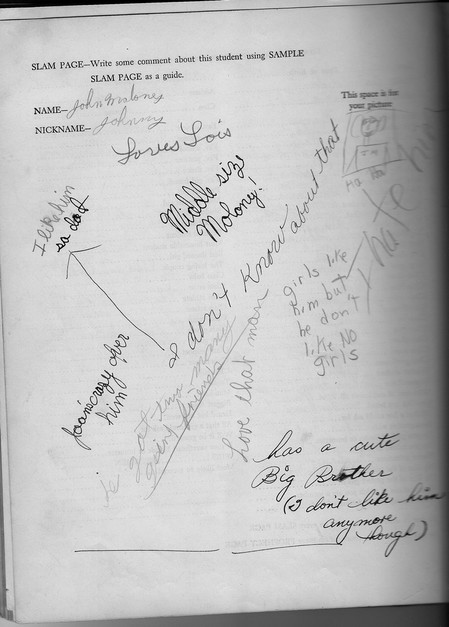 SLAM PAGE—Write some comment about this student using SAMPLE
SLAM PAGE as a guide.
NAME— John Moloney
NICKNAME— Johnny
This space is for
your picture
Ha Ha
Loves Lois
Middle size
Moloney!
I like him
so do I
I don't know about that
I hate him
girls like
him but
he don't
like NO
girls
Joan's crazy over
him
he got two many
girl friends
love that man
has a cute
Big Brother
(I don't like him
anymore
though)